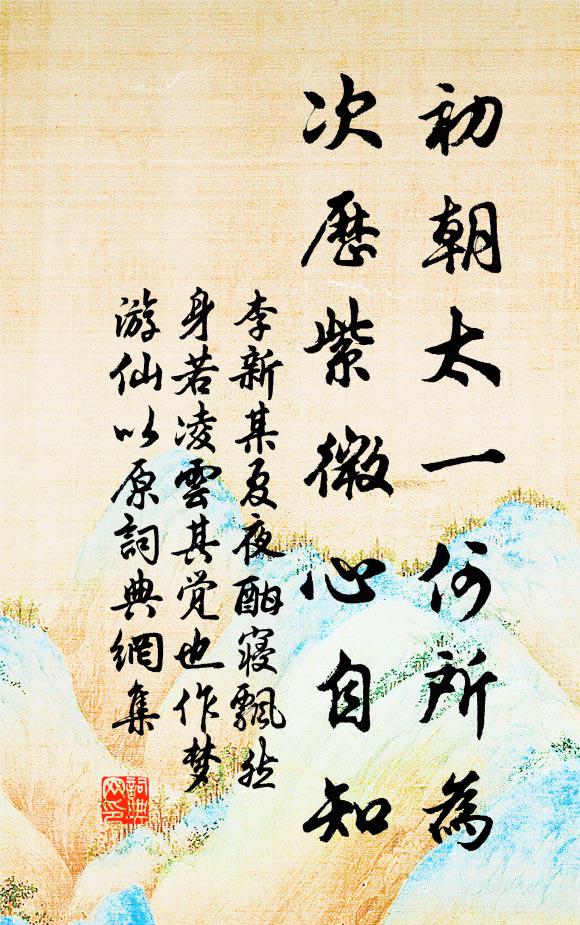 初朝太一何所為
次歷紫微心自知
李新某夏夜酣寢飄然
身若凌雲其覺也作梦
游仙以原詞典網集
詞典網印